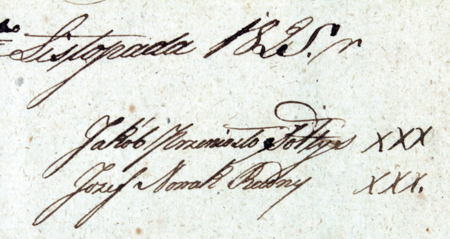 Listopada 1825. r
Jakób Krzemiński Sołtys XXX
Józef Nowak Radny XXX.